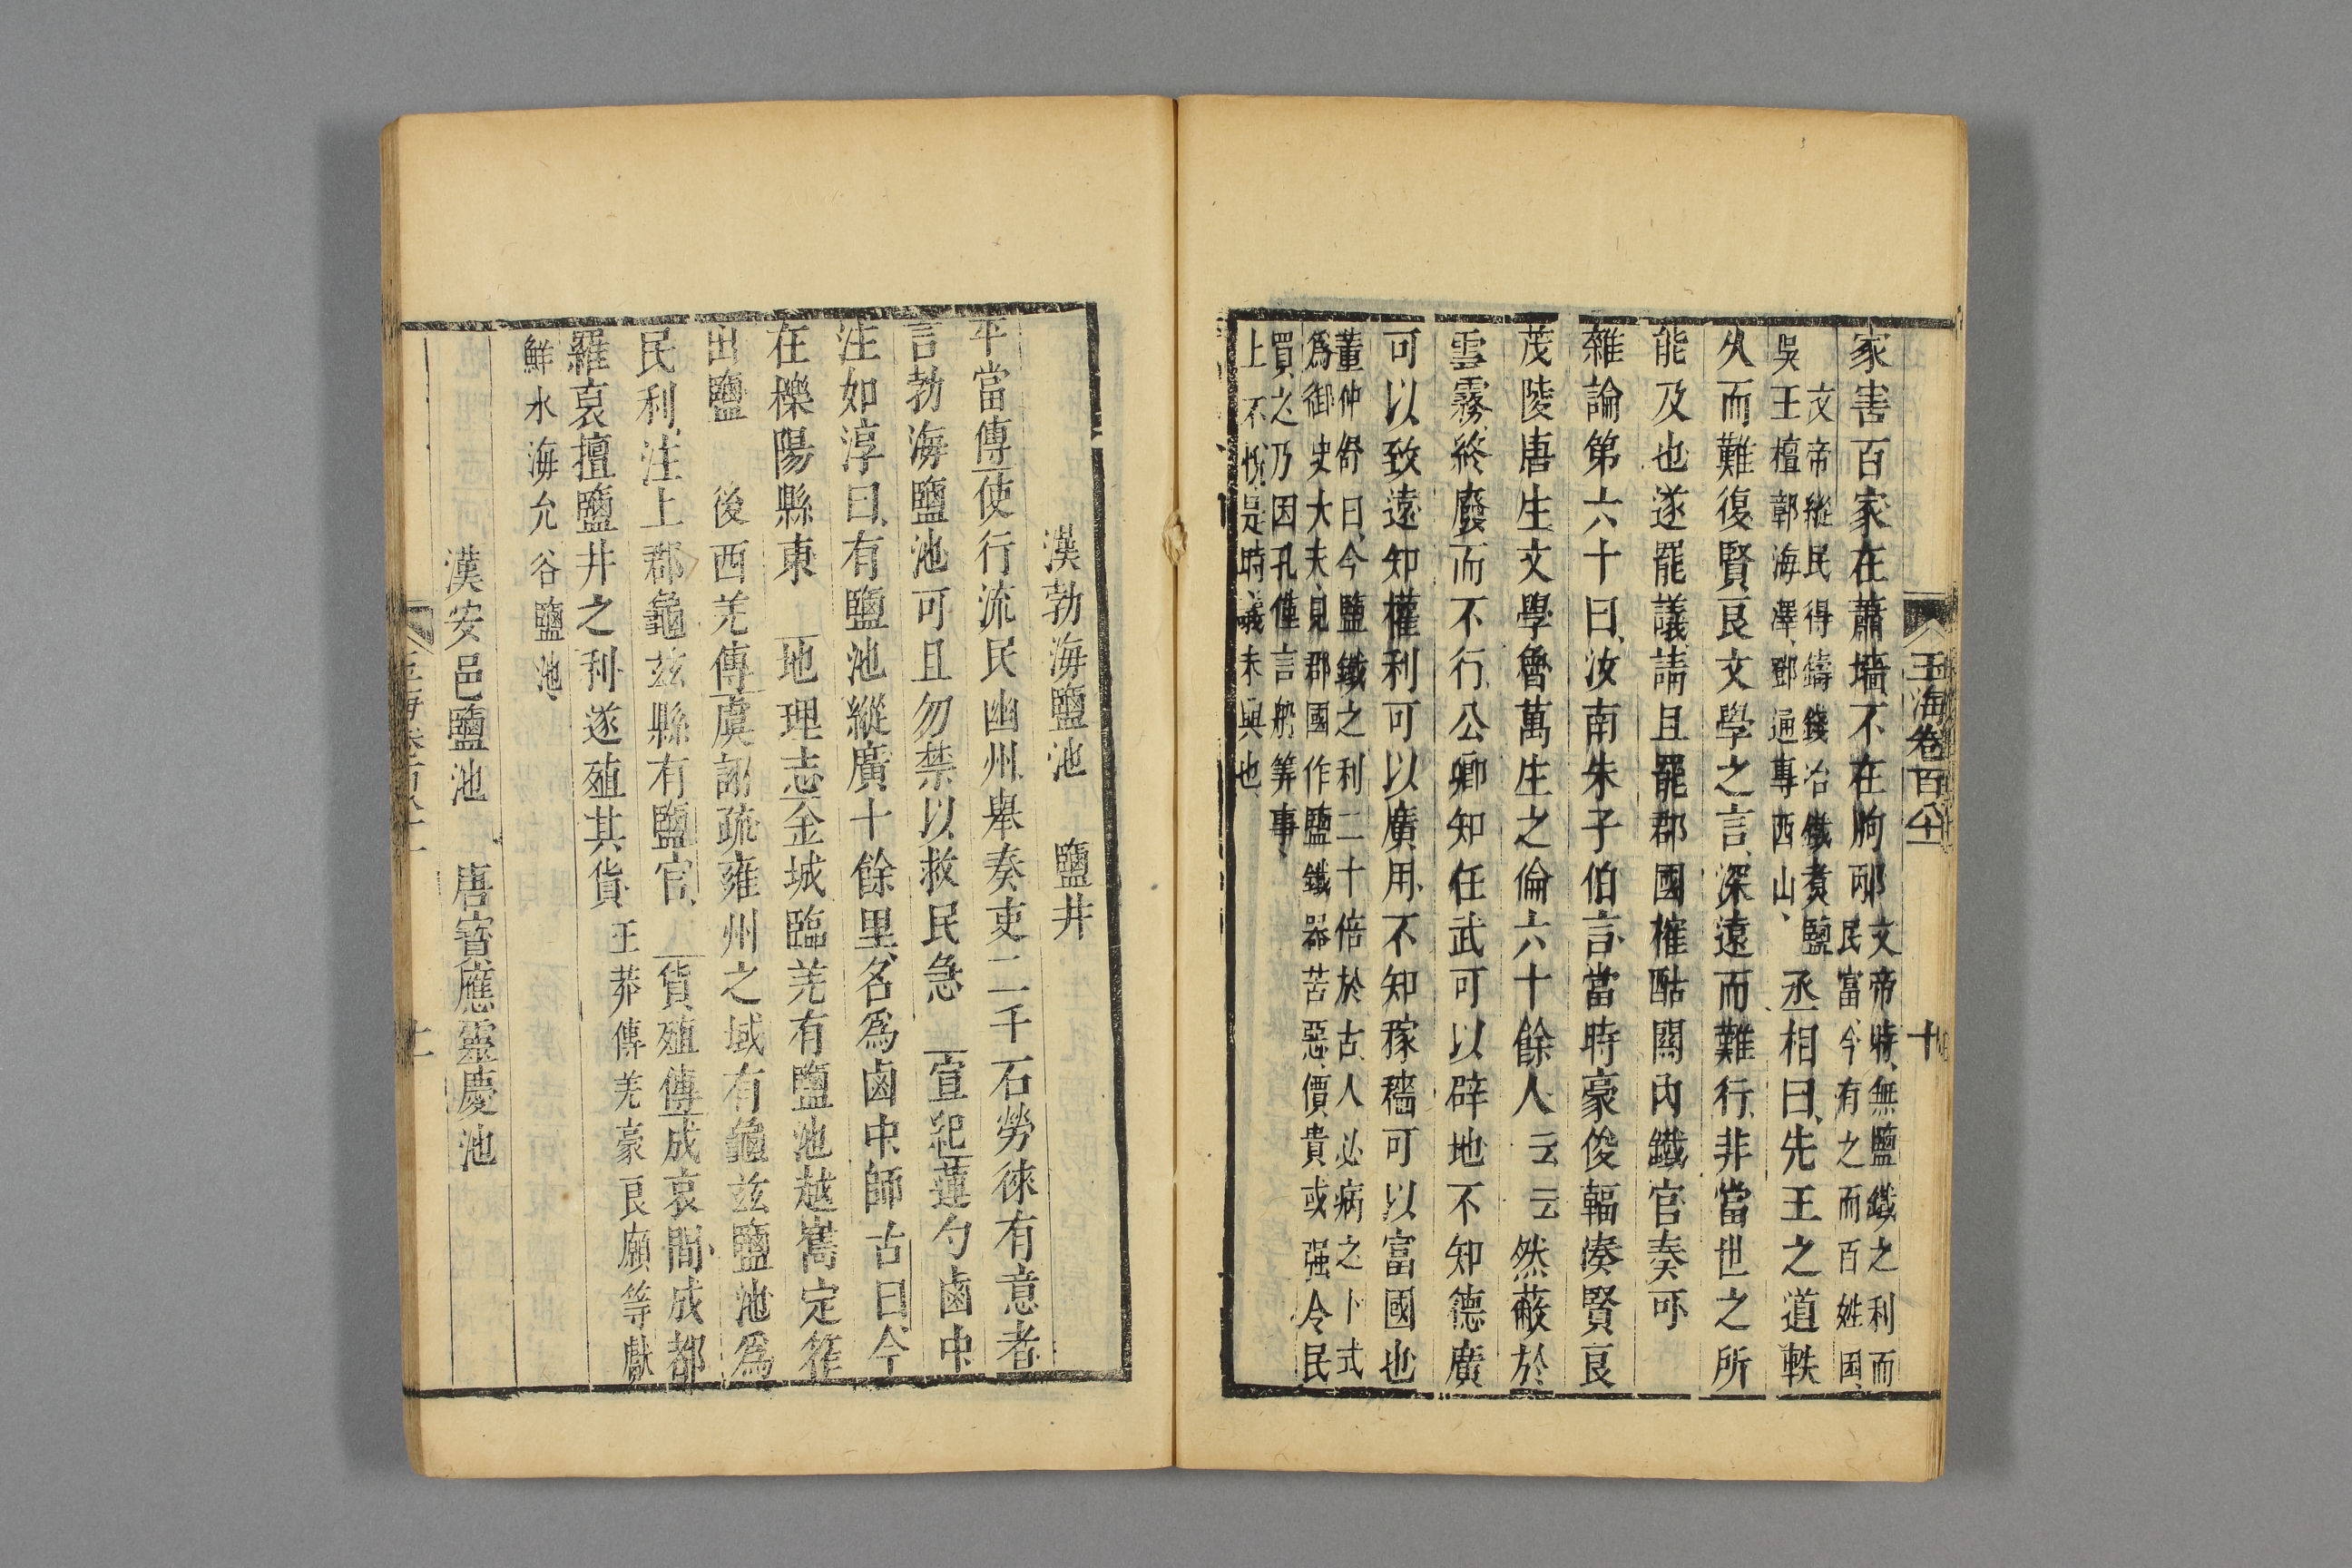 玉海卷百八十一
十
家害百家在蕭墻不在朐邴
文帝時無鹽鐵之利而
民富今有之而百姓困
文帝縱民得鑄錢冶鐵煮鹽
吳王檀鄣海澤鄧通專西山
丞相曰先王之道軼
久而難復賢良文學之言深遠而難行非當世之所
能及也遂罷議請且罷郡國榷酤關內鐵官奏可
雜論第六十曰汝南朱子伯言當時豪俊輻湊賢良
茂陵唐生文學魯萬生之倫六十餘人云云然蔽於
雲霧終廢而不行公卿知任武可以辟地不知德廣
可以致遠知權利可以廣用不知稼穡可以富國也
董仲舒曰今鹽鐵之利二十倍於古人必病之卜式
爲御史大夫見郡國作鹽鐵器苦惡價貴或强令民
買之乃因孔僅言船筭事
上不悅是時議未興也
漢勃海鹽池　鹽井
平當傳使行流民幽州舉奏吏二千石勞徠有意者
言勃海鹽池可且勿禁以救民急　宣紀蓮勺鹵中
注如淳曰有鹽池縱廣十餘里名爲鹵中師古曰今
在櫟陽縣東　地理志金城臨羌有鹽池越巂定筰
出鹽　後西羌傳虞詡疏雍州之域有龜茲鹽池爲
民利注上郡龜茲縣有鹽官　貨殖傳成哀間成都
羅裒擅鹽井之利遂殖其貨
王莽傳羌豪良願等獻
鮮水海允谷鹽池
漢安邑鹽池　唐寶應靈慶池
十一